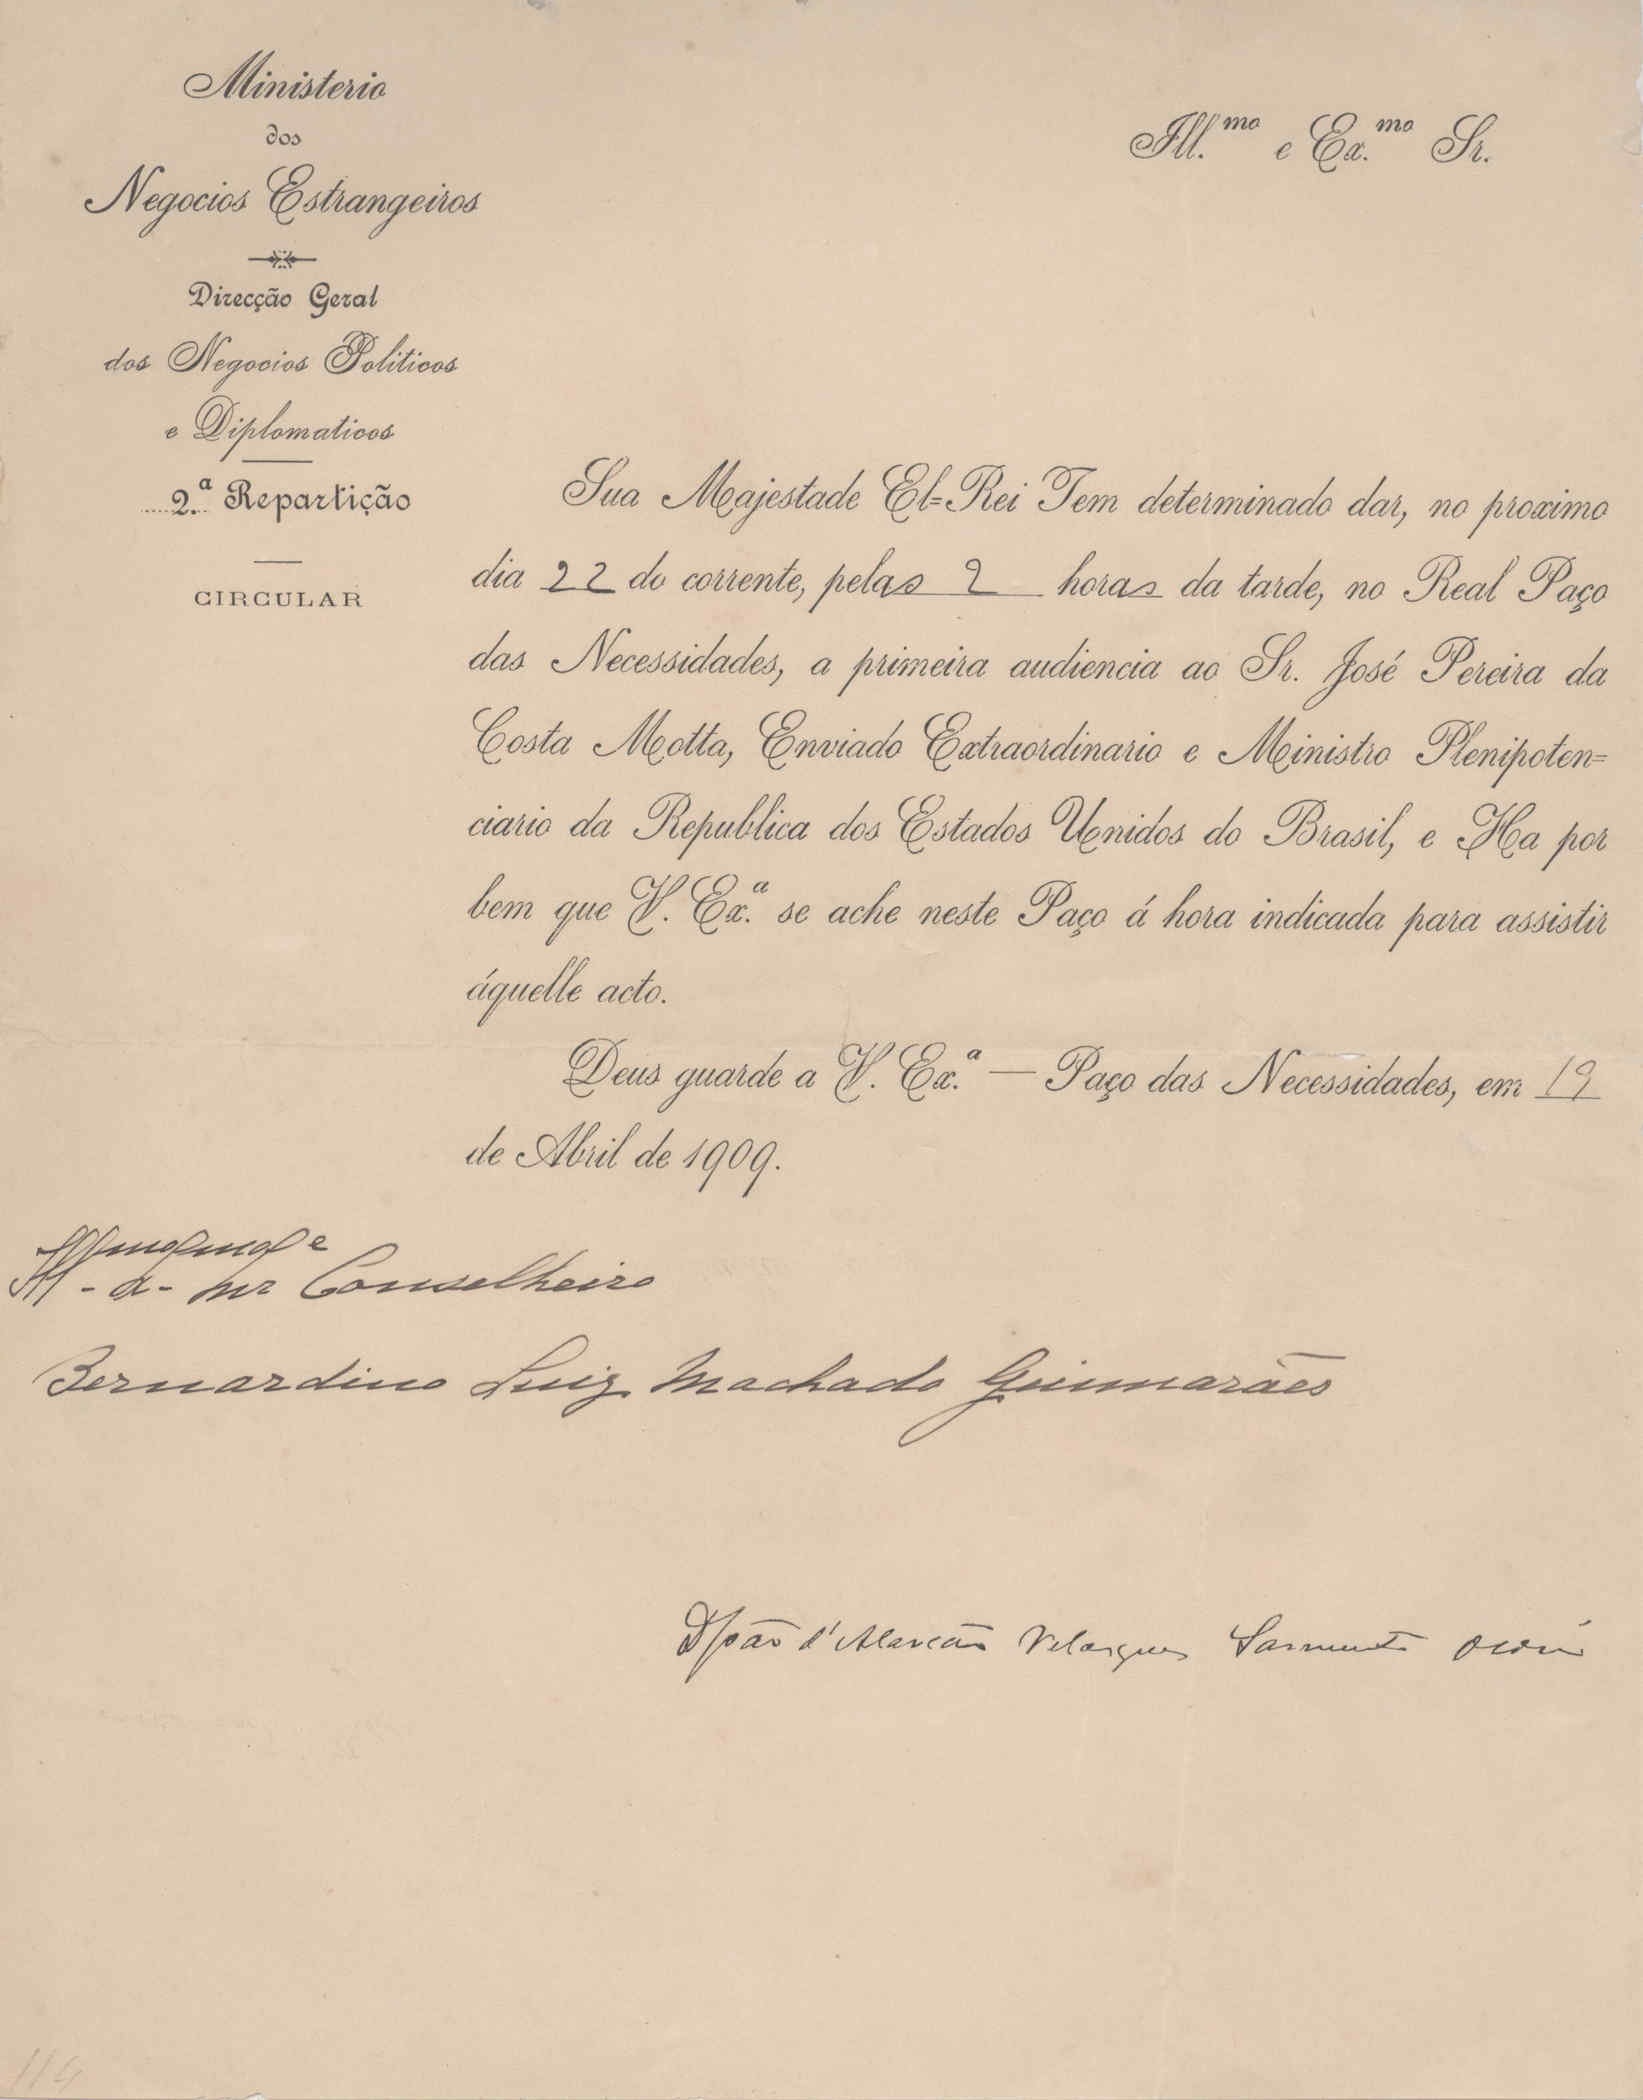 Ministerio
dos
Negocios Estrangeiros
Direcção Geral
dos Negocios Politicos
e Diplomaticos
2.ª Repartição
CIRCULAR
Ill.mo e Ex.mo Sr.
Sua Majestade El-Rei Tem determinado dar, no proximo
dia 22 do corrente, pelas 2 horas da tarde, no Real Paço
das Necessidades, a primeira audiencia ao Sr. José Pereira da
Costa Motta, Enviado Extraordinario e Ministro Plenipoten=
ciario da Republica dos Estados Unidos do Brasil, e Ha por
bem que V. Ex.ª se ache neste Paço á hora indicada para assistir
áquelle acto.
Deus guarde a V. Ex.ª — Paço das Necessidades, em 19
de Abril de 1909.
Conselheiro
Bernardino Luiz Machado Guimarães
D João d'Alarcão Velasques Sarmento Osorio
114